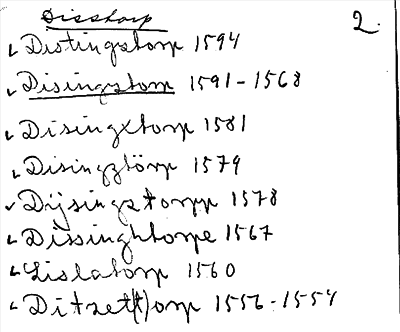 Disstorp
2.
Distingstorp 1594
Disingstorp 1591-1568
Disingxtorp 1581
Disingztörp 1579
Dijsingstorpp 1578
Dissinghtorpe 1567
Lislatorp 1560
Ditzet(t)orp 1556-1554